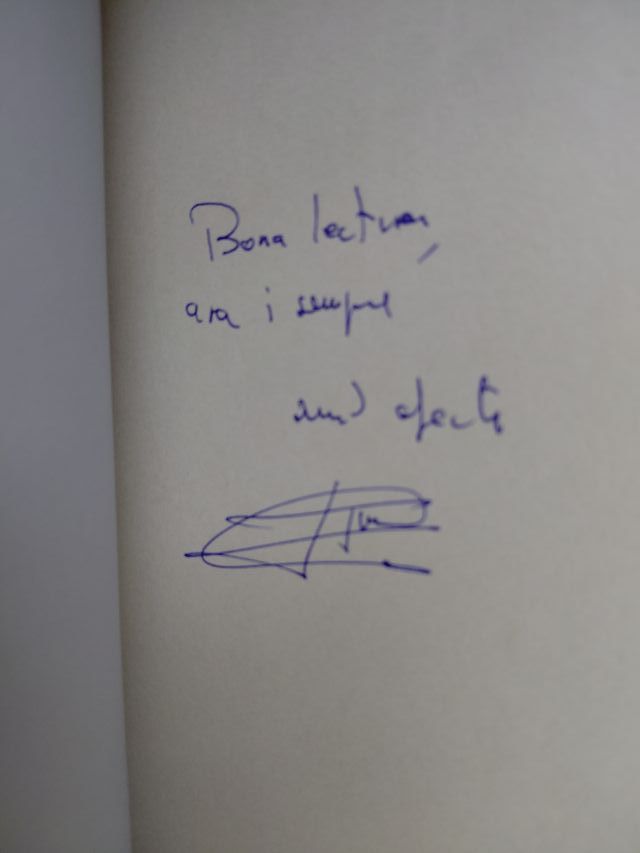 Bona lectura,
ara i sempre
afecte